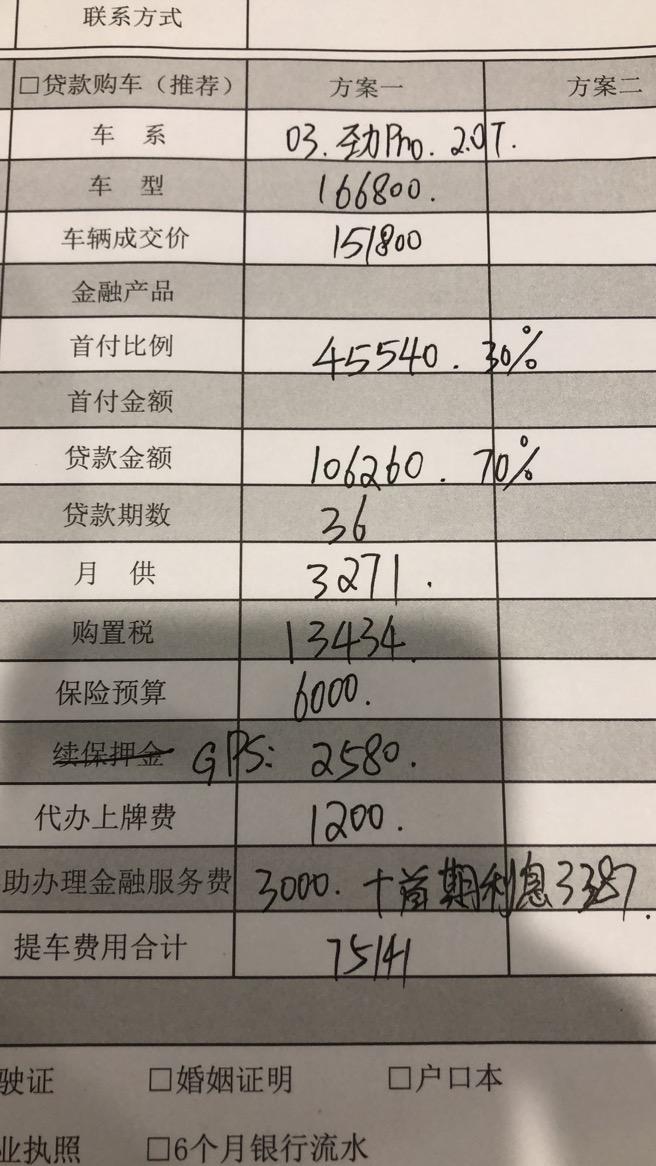 联系方式
□贷款购车（推荐） 方案一 方案二
车 系 03.劲Pro. 2.0T.
车 型 166800.
车辆成交价 151800
金融产品
首付比例 45540. 30%
首付金额
贷款金额 106260. 70%
贷款期数 36
月 供 3271.
购置税 13434.
保险预算 6000.
续保押金 GPS: 2580.
代办上牌费 1200.
助办理金融服务费 3000. 十首期利息3387.
提车费用合计 75141
驶证 □婚姻证明 □户口本
业执照 □6个月银行流水